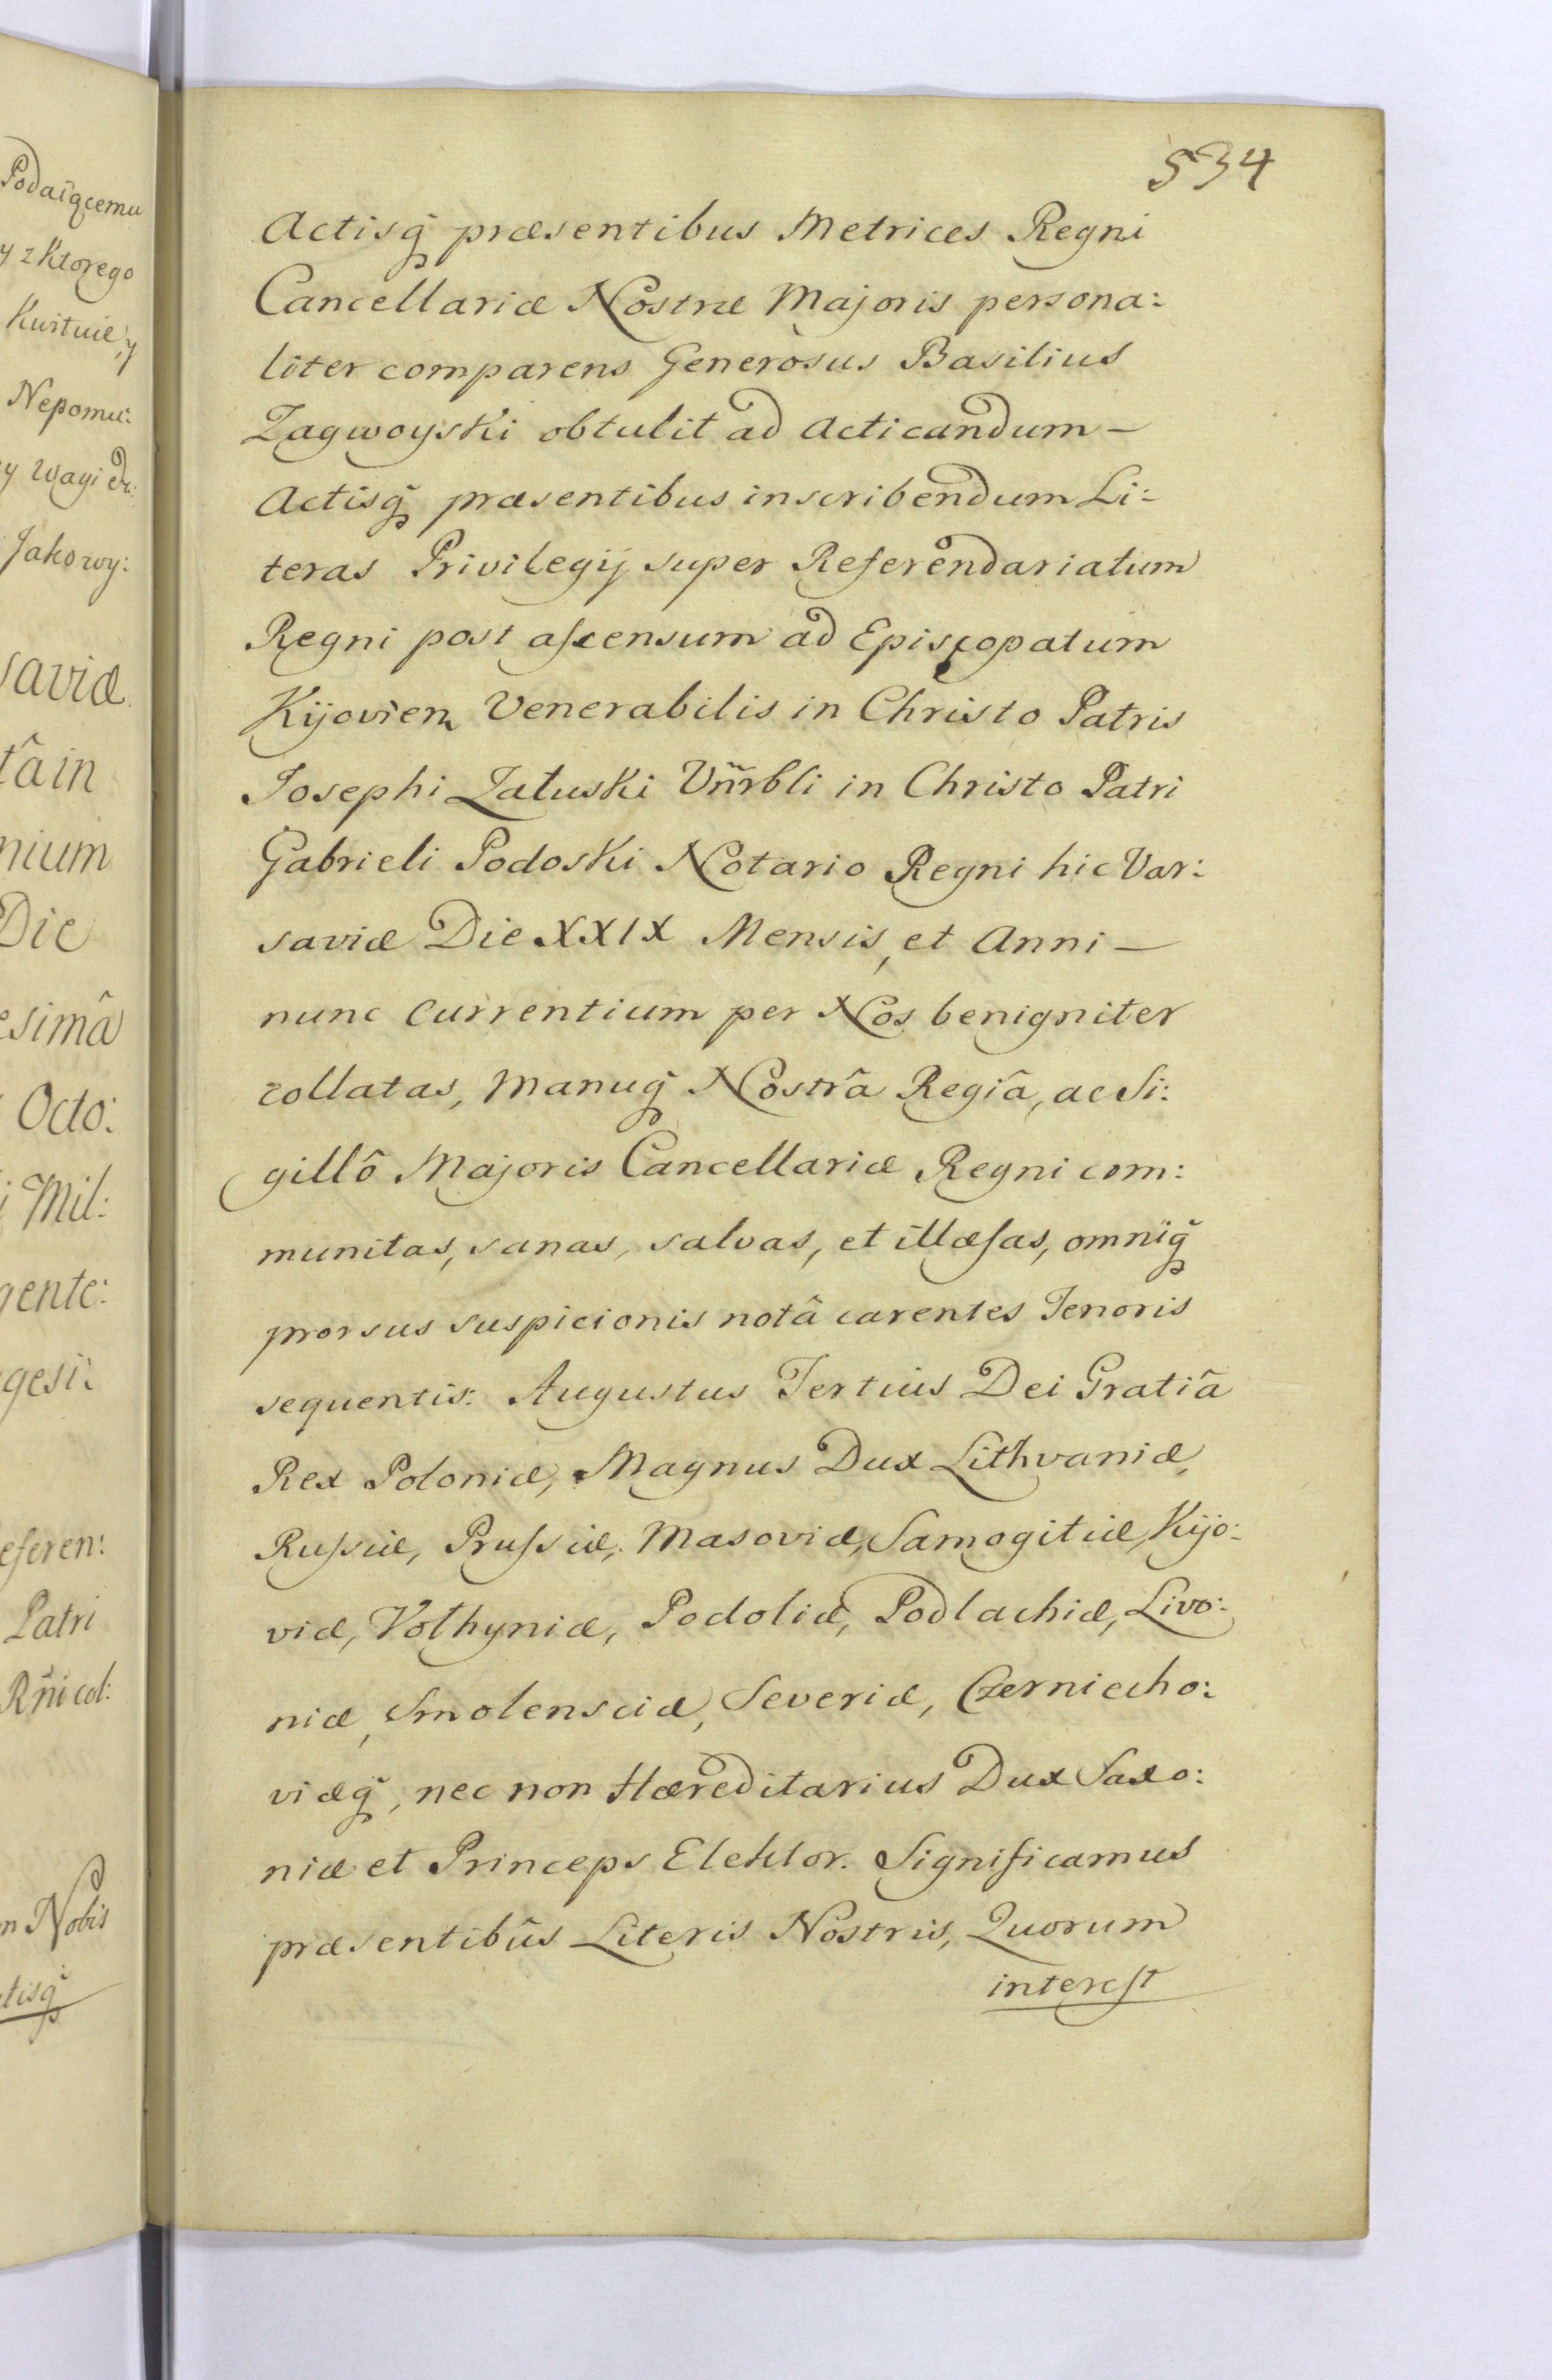 Podaiącemu
y z Ktorego
Kwituie, y
Nepomu:
y Wagi
Jakowy:
saviæ
tâ in
nium
Die
esimâ
Octo:
i Mil:
gente:
gesi:
eferen:
Patri
Rñi col:
m Nobis
ctisq̃
534
Actisq̃ præsentibus Metrices Regni
Cancellariæ Nostræ Majoris persona:
liter comparens Generosus Basilius
Zagwoyski obtulit ad Acticandum –
Actisq̃ præsentibus inscribendum Li:
teras Privilegij super Referendariatum
Regni post ascensum ad Episcopatum
Kijovien Venerabilis in Christo Patris
Josephi Załuski Vñrbli in Christo Patri
Gabrieli Podoski Notario Regni hic Var:
saviæ Die XXIX Mensis, et Anni –
nunc currentium per Nos benigniter
collatas, Manuq̃ Nostrâ Regiâ, ac Si:
gillô Majoris Cancellariæ Regni com:
munitas, sanas, salvas, et illæsas, omniq̃
prorsus suspicionis notâ carentes Tenoris
sequentis: Augustus Tertius Dei Gratiâ
Rex Poloniæ, Magnus Dux Lithvaniæ,
Russiæ, Prussiæ, Masoviæ, Samogitiæ, Kijo:
viæ, Volhyniæ, Podoliæ, Podlachiæ, Livo:
niæ, Smolensciæ, Severiæ, Czerniecho:
viæq̃, nec non Hæreditarius Dux Saxo:
niæ et Princeps Elektor. Significamus
præsentibûs Literis Nostris, Quorum
interest